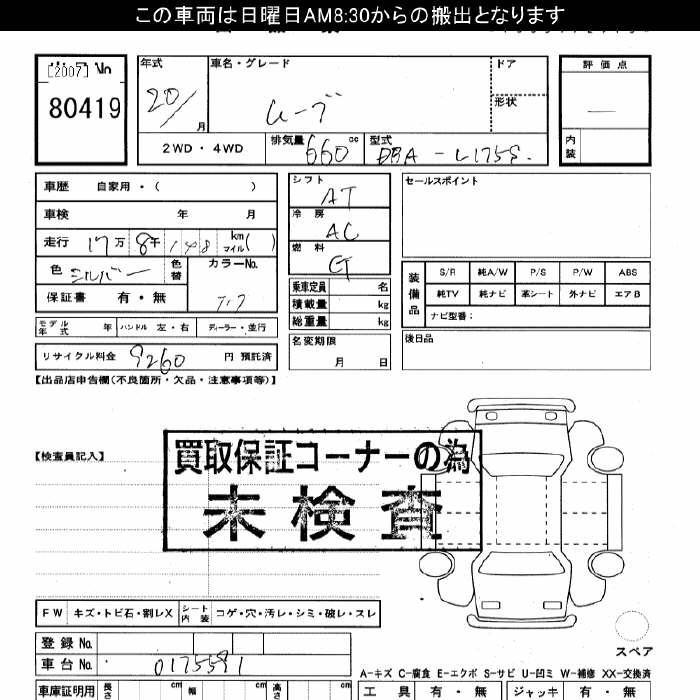 この車両は日曜日AM8:30からの搬出となります
[2007] No
80419
年式
20/
月
車名・グレード
ムーブ
ドア
形状
評価点
内装
2WD・4WD
排気量 660 cc
型式 DBA-L175S.
車歴 自家用・( )
車検 年 月
走行 17万 8千 148 km マイル( )
色 シルバー 色替
カラーNo.
保証書 有・無
モデル年式 年 ハンドル 左・右 ディーラー・並行
リサイクル料金 9260 円 預託済
シフト AT
冷房 AC
燃料 G
乗車定員 名
積載量 kg
総重量 kg
名変期限
月 日
セールスポイント
装備品
S/R 純A/W P/S P/W ABS
純TV 純ナビ 革シート 外ナビ エアB
ナビ型番:
後日品
【出品店申告欄(不良箇所・欠品・注意事項等)】
【検査員記入】
買取保証コーナーの為
未検査
FW キズ・トビ石・割レX シート内装 コゲ・穴・汚レ・シミ・破レ・スレ
登録No.
車台No. 0175591
スペア
A-キズ C-腐食 E-エクボ S-サビ U-凹ミ W-補修 XX-交換済
車庫証明用 長さ cm 幅 cm 高さ cm
工具 有・無 ジャッキ 有・無